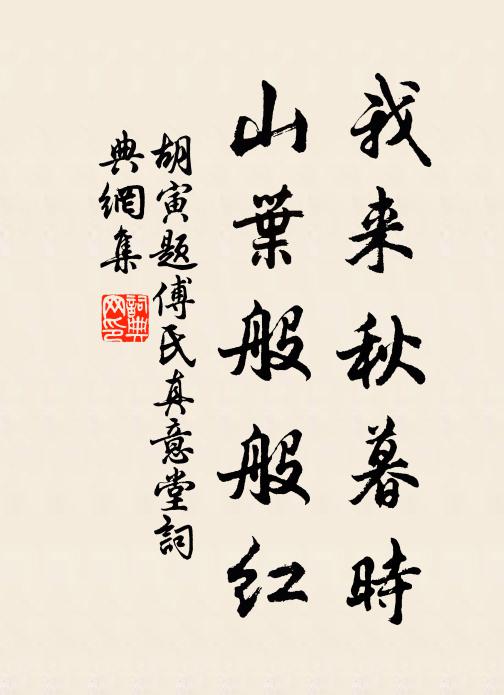 我来秋暮時
山葉般般紅
胡寅題傅氏真意堂詞
典網集
詞典网印